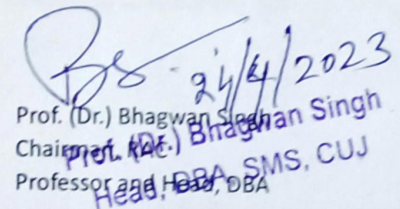 24/4/2023
Prof. (Dr.) Bhagwan Singh
Chairman, RAC
Professor and Head, DBA
Prof. (Dr.) Bhagwan Singh
Head, DBA, SMS, CUJ